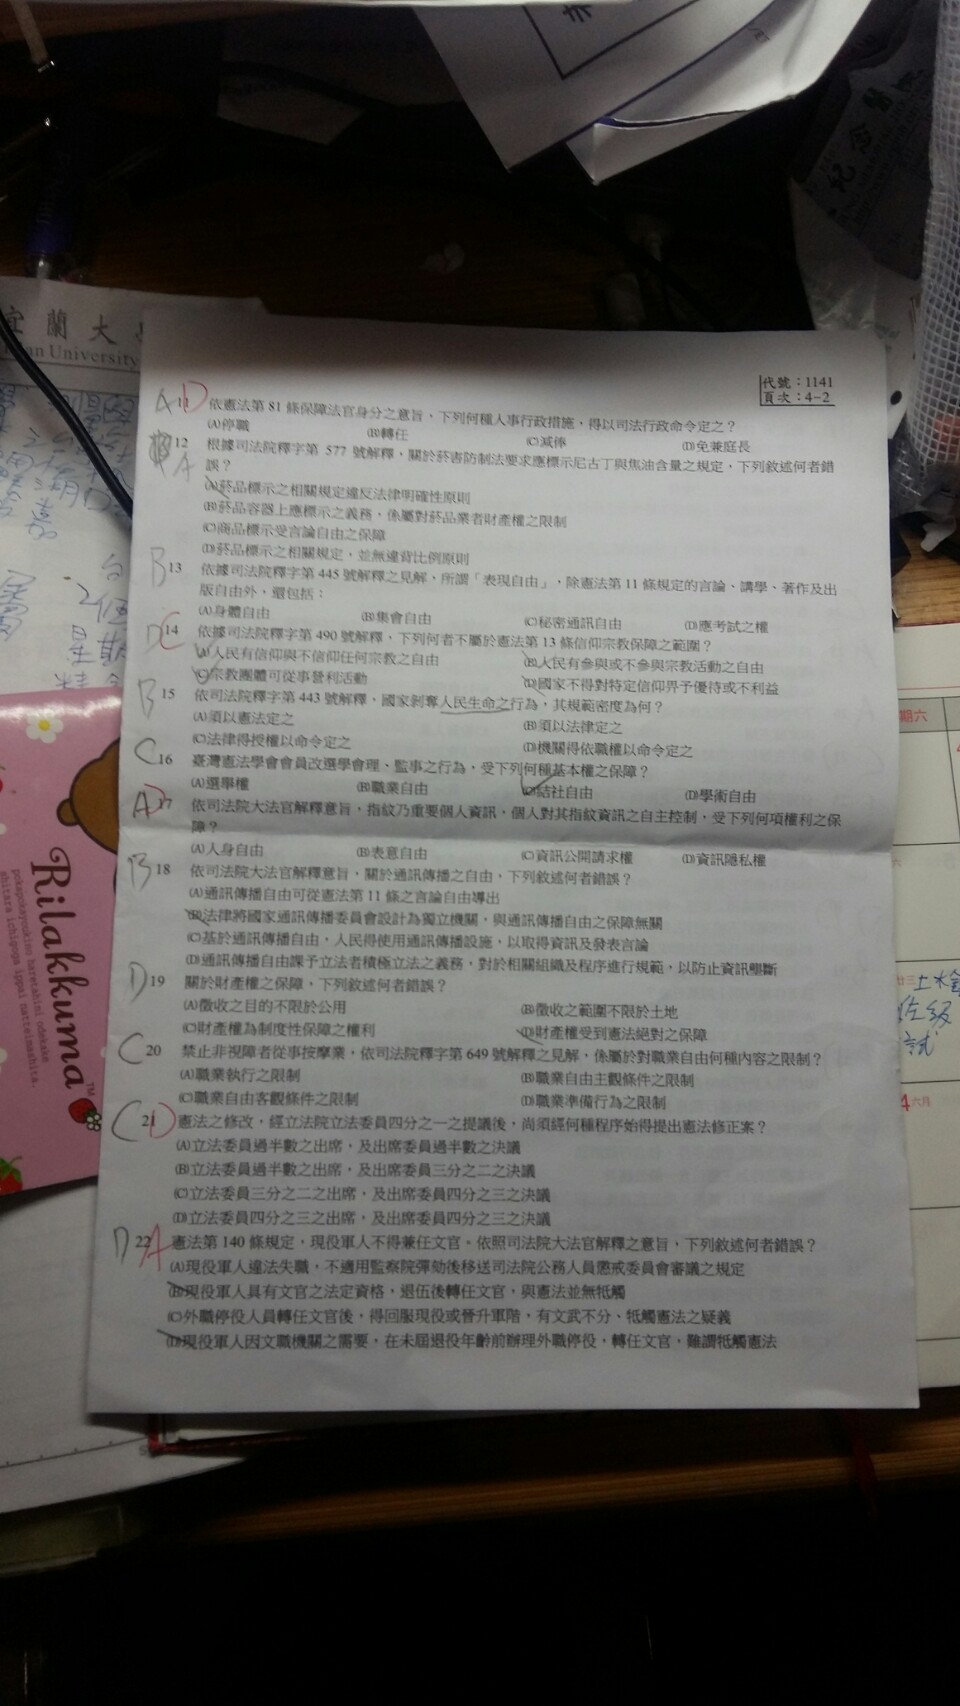 宜蘭大
lan University
代號：1141
頁次：4-2
A 11 D 依憲法第 81 條保障法官身分之意旨，下列何種人事行政措施，得以司法行政命令定之？
(A)停職 (B)轉任 (C)減俸 (D)免兼庭長
A 12 根據司法院釋字第 577 號解釋，關於菸害防制法要求應標示尼古丁與焦油含量之規定，下列敘述何者錯
誤？
(A)菸品標示之相關規定違反法律明確性原則
(B)菸品容器上應標示之義務，係屬對菸品業者財產權之限制
(C)商品標示受言論自由之保障
(D)菸品標示之相關規定，並無違背比例原則
B 13 依據司法院釋字第 445 號解釋之見解，所謂「表現自由」，除憲法第 11 條規定的言論、講學、著作及出
版自由外，還包括：
(A)身體自由 (B)集會自由 (C)秘密通訊自由 (D)應考試之權
D C 14 依據司法院釋字第 490 號解釋，下列何者不屬於憲法第 13 條信仰宗教保障之範圍？
(A)人民有信仰與不信仰任何宗教之自由 (B)人民有參與或不參與宗教活動之自由
(C)宗教團體可從事營利活動 (D)國家不得對特定信仰畀予優待或不利益
B 15 依司法院釋字第 443 號解釋，國家剝奪人民生命之行為，其規範密度為何？
(A)須以憲法定之 (B)須以法律定之
(C)法律得授權以命令定之 (D)機關得依職權以命令定之
C 16 臺灣憲法學會會員改選學會理、監事之行為，受下列何種基本權之保障？
(A)選舉權 (B)職業自由 (C)結社自由 (D)學術自由
A D 17 依司法院大法官解釋意旨，指紋乃重要個人資訊，個人對其指紋資訊之自主控制，受下列何項權利之保
障？
(A)人身自由 (B)表意自由 (C)資訊公開請求權 (D)資訊隱私權
B 18 依司法院大法官解釋意旨，關於通訊傳播之自由，下列敘述何者錯誤？
(A)通訊傳播自由可從憲法第 11 條之言論自由導出
(B)法律將國家通訊傳播委員會設計為獨立機關，與通訊傳播自由之保障無關
(C)基於通訊傳播自由，人民得使用通訊傳播設施，以取得資訊及發表言論
(D)通訊傳播自由課予立法者積極立法之義務，對於相關組織及程序進行規範，以防止資訊壟斷
D 19 關於財產權之保障，下列敘述何者錯誤？
(A)徵收之目的不限於公用 (B)徵收之範圍不限於土地
(C)財產權為制度性保障之權利 (D)財產權受到憲法絕對之保障
C 20 禁止非視障者從事按摩業，依司法院釋字第 649 號解釋之見解，係屬於對職業自由何種內容之限制？
(A)職業執行之限制 (B)職業自由主觀條件之限制
(C)職業自由客觀條件之限制 (D)職業準備行為之限制
C 21 D 憲法之修改，經立法院立法委員四分之一之提議後，尚須經何種程序始得提出憲法修正案？
(A)立法委員過半數之出席，及出席委員過半數之決議
(B)立法委員過半數之出席，及出席委員三分之二之決議
(C)立法委員三分之二之出席，及出席委員四分之三之決議
(D)立法委員四分之三之出席，及出席委員四分之三之決議
D 22 A 憲法第 140 條規定，現役軍人不得兼任文官。依照司法院大法官解釋之意旨，下列敘述何者錯誤？
(A)現役軍人違法失職，不適用監察院彈劾後移送司法院公務人員懲戒委員會審議之規定
(B)現役軍人具有文官之法定資格，退伍後轉任文官，與憲法並無牴觸
(C)外職停役人員轉任文官後，得回服現役或晉升軍階，有文武不分、牴觸憲法之疑義
(D)現役軍人因文職機關之需要，在未屆退役年齡前辦理外職停役，轉任文官，難謂牴觸憲法
Rilakkuma™
pokapokayoukino haretahini odekake
shitara ichigoga ippai natteimashita.
期六
土木
班級
考試
4 六月